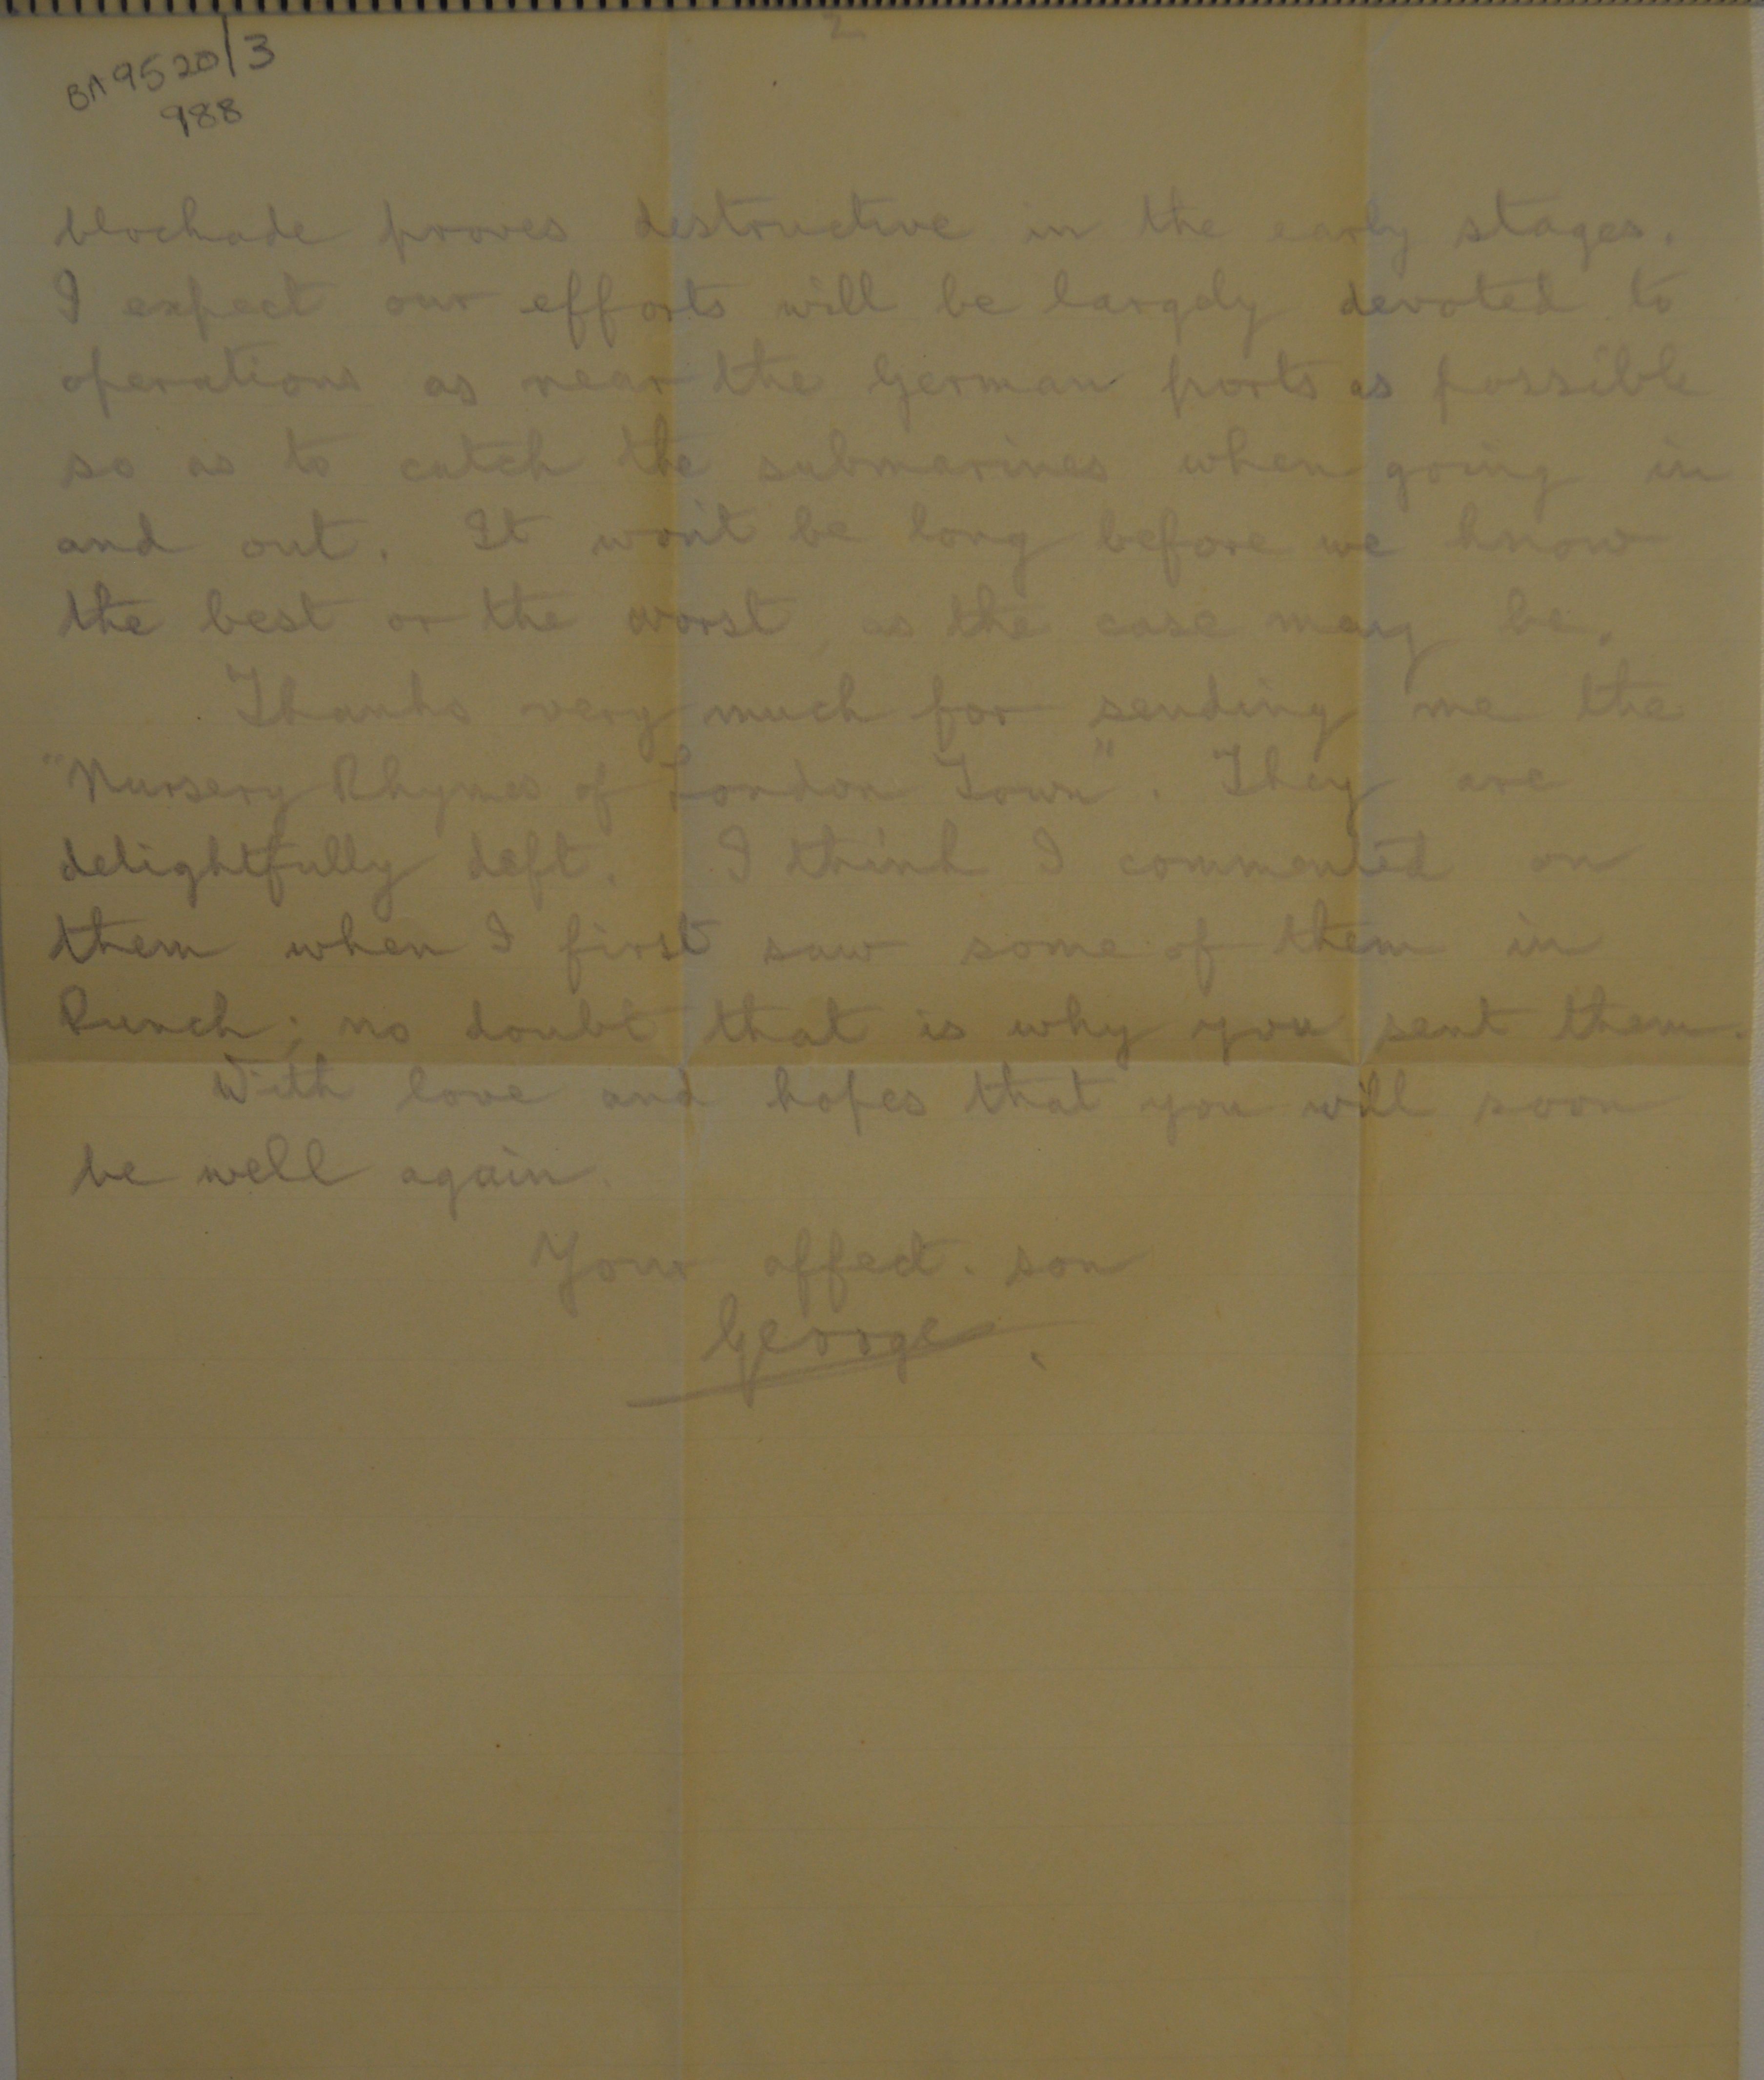 2
BA 9520/3
988
blockade proves destructive in the early stages.
I expect our efforts will be largely devoted to
operations as near the German ports as possible
so as to catch the submarines when going in
and out. It won't be long before we know
the best or the worst, as the case may be.
Thanks very much for sending me the
"Nursery Rhymes of London Town". They are
delightfully deft. I think I commented on
them when I first saw some of them in
Punch; no doubt that is why you sent them.
With love and hopes that you will soon
be well again.
Your affect. son
George.